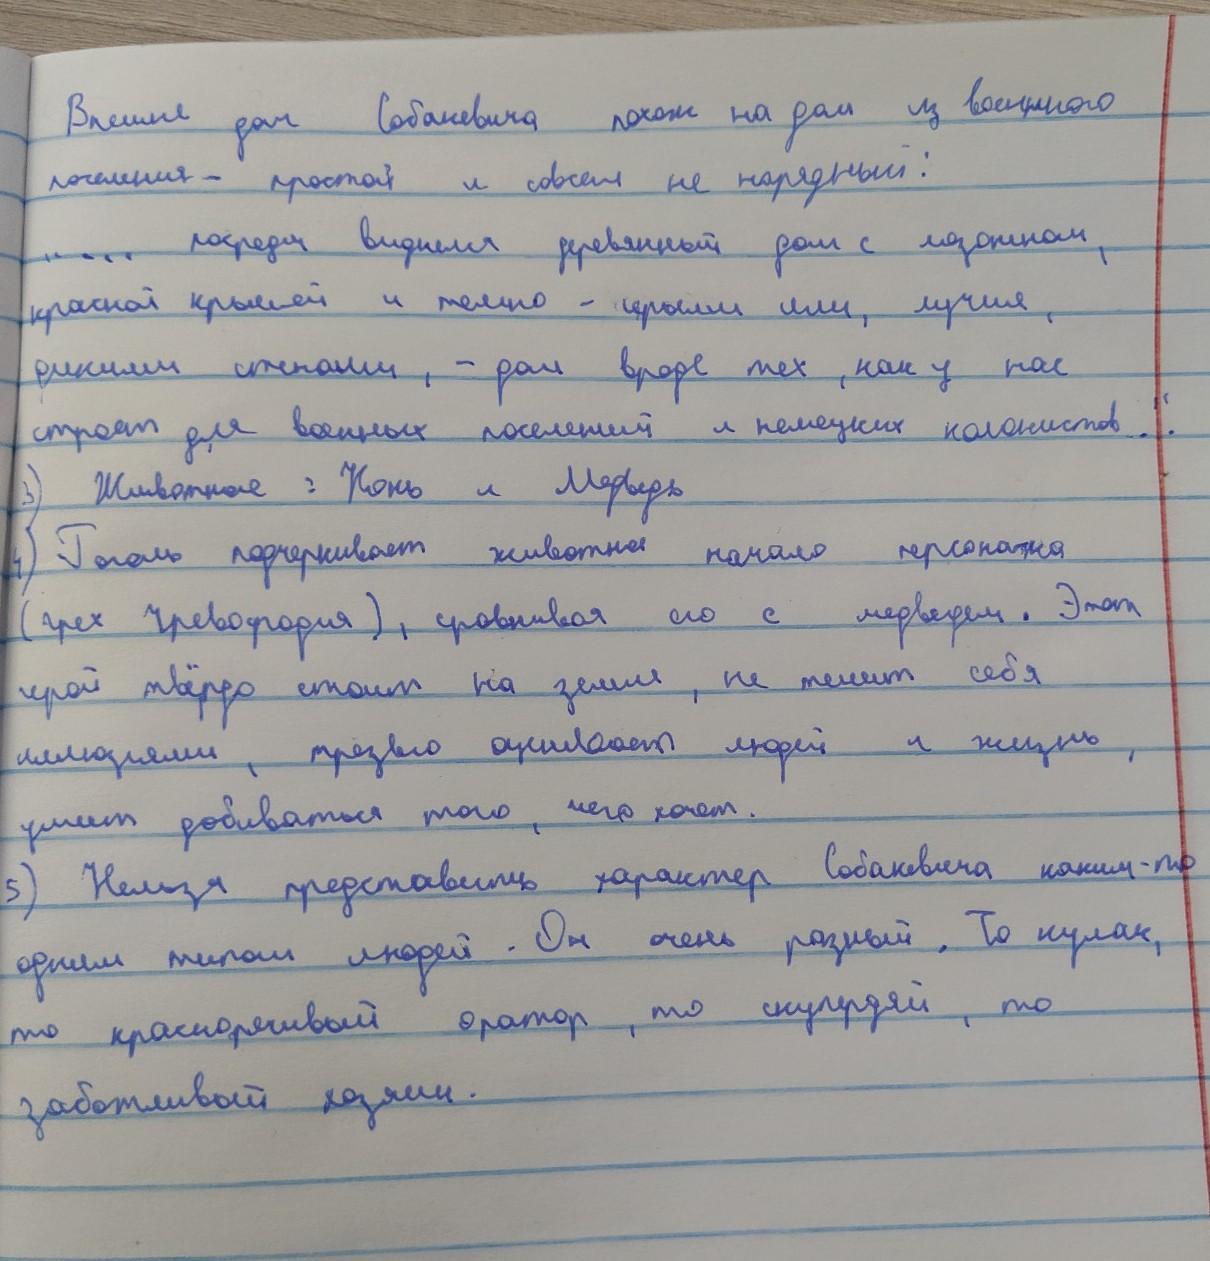 Внешне дом Собакевича похож на дом из военного
поселения - простой и совсем не нарядный:
"... посреди виднелся деревянный дом с мезонином,
красной крышей и темно - серыми или, лучше,
дикими стенами, - дом вроде тех, как у нас
строят для военных поселений и немецких колонистов..."
3) Животное: Конь и Медведь
4) Гоголь подчеркивает животное начало персонажа
(грех чревоугодия), сравнивая его с медведем. Этот
герой твёрдо стоит на земле, не тешит себя
иллюзиями, трезво оценивает людей и жизнь,
умеет добиваться того, чего хочет.
5) Нельзя представить характер Собакевича каким-то
одним типом людей. Он очень разный. То кулак,
то красноречивый оратор, то скупердяй, то
заботливый хозяин.